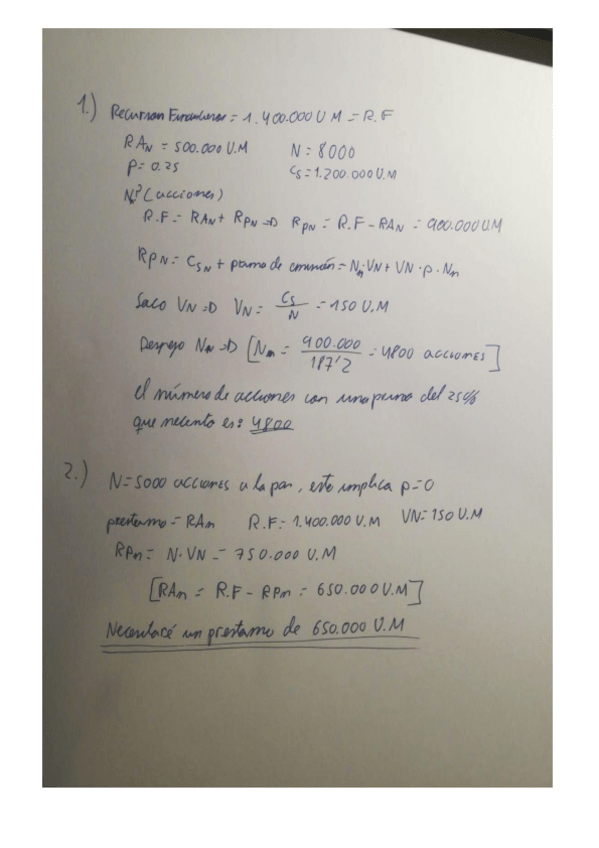 1.) Recursos Financieros = 1.400.000 U M = R.F
RAN = 500.000 U.M N = 8000
P = 0.25 Cs = 1.200.000 U.M
Nnº (acciones)
R.F = RAN + RPN => RPN = R.F - RAN = 900.000 U.M
RPN = CSN + prima de emisión = Nn·VN + VN·p·Nn
Saco VN => VN = Cs/N = 150 U.M
Despejo Nn => [Nn = 900.000/187'2 = 4800 acciones]
El número de acciones con una prima del 25%
que necesito es: 4800
2.) N = 5000 acciones a la par, esto implica p = 0
prestamo = RAn R.F = 1.400.000 U.M VN = 150 U.M
RPn = N·VN = 750.000 U.M
[RAn = R.F - RPn = 650.000 U.M]
Necesitaré un prestamo de 650.000 U.M